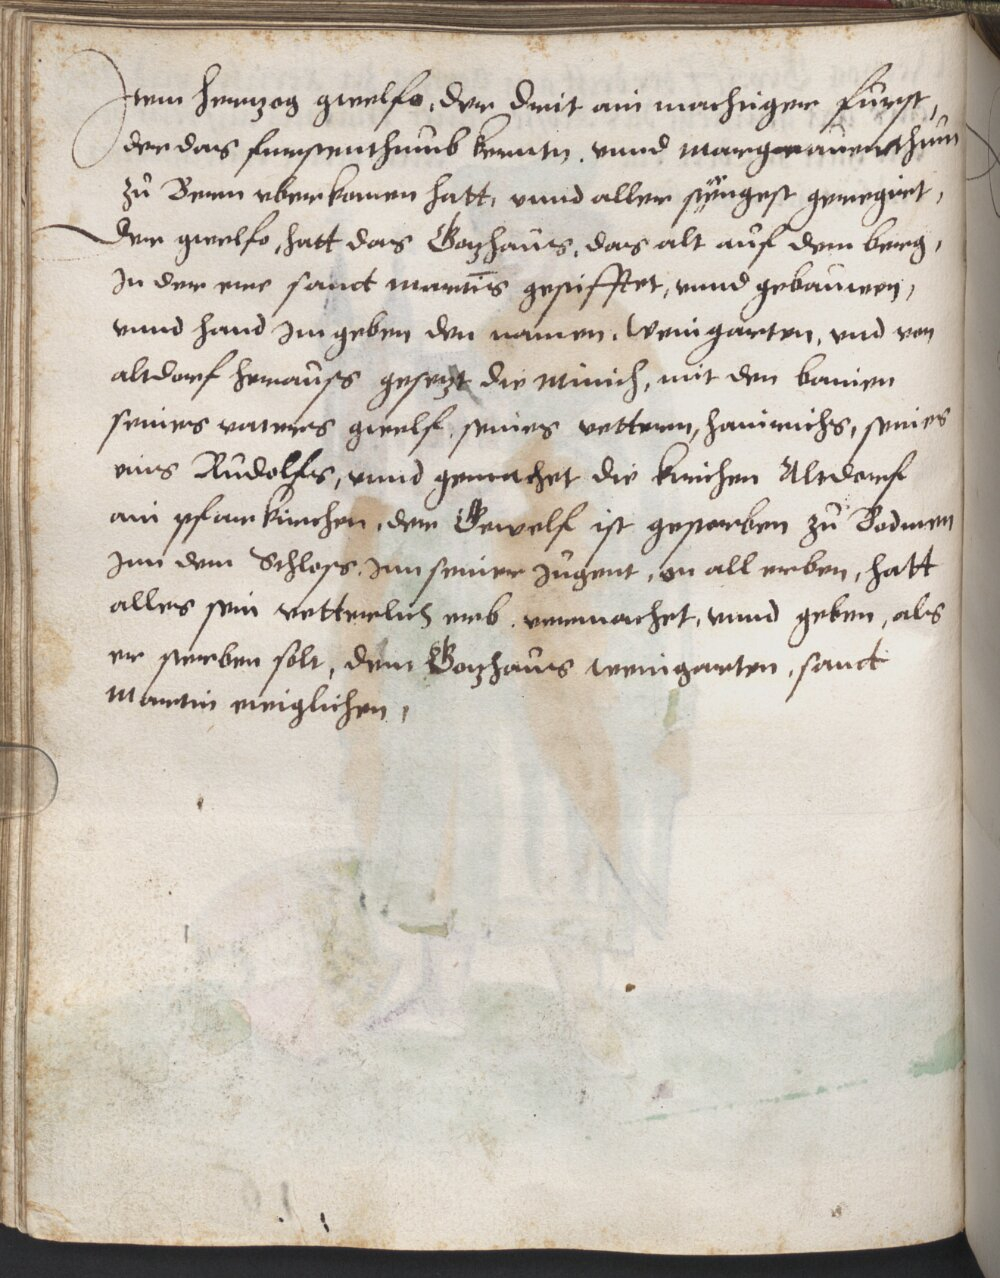 Item hertzog gwelfo, der drit ain machtiger fürst,
der das furstenthumb kerntn, vnnd Marggrauenthum
zů Bern vberkomen hatt, vnnd aller syngest geregirt,
Der gwelfo, hatt das Gotzhaüs, das alt aůf dem berg,
In der ere sanct Martīs gestifftet, vnnd gebaůwen,
vnnd hand Im geben den namen, Weingarten, vnd von
altdorf heraůss gesetzt die Münich, mit den bainen
seines vaters gwelf, seines vettern, hainrichs, seines
enis Růdolfs, vnnd gemachet die kirchen Altdorf
ain pfarkirchen, der Gewelf ist gestorben zů Bodmen
Inn dem Schloss, Inn seiner Jůgent, on all erben, hatt
alles sein vetterlich erb, vermachet, vnnd geben, als
er sterben solt, dem Gotzhaůs Weingarten, sanct
Martin ewiglichen,